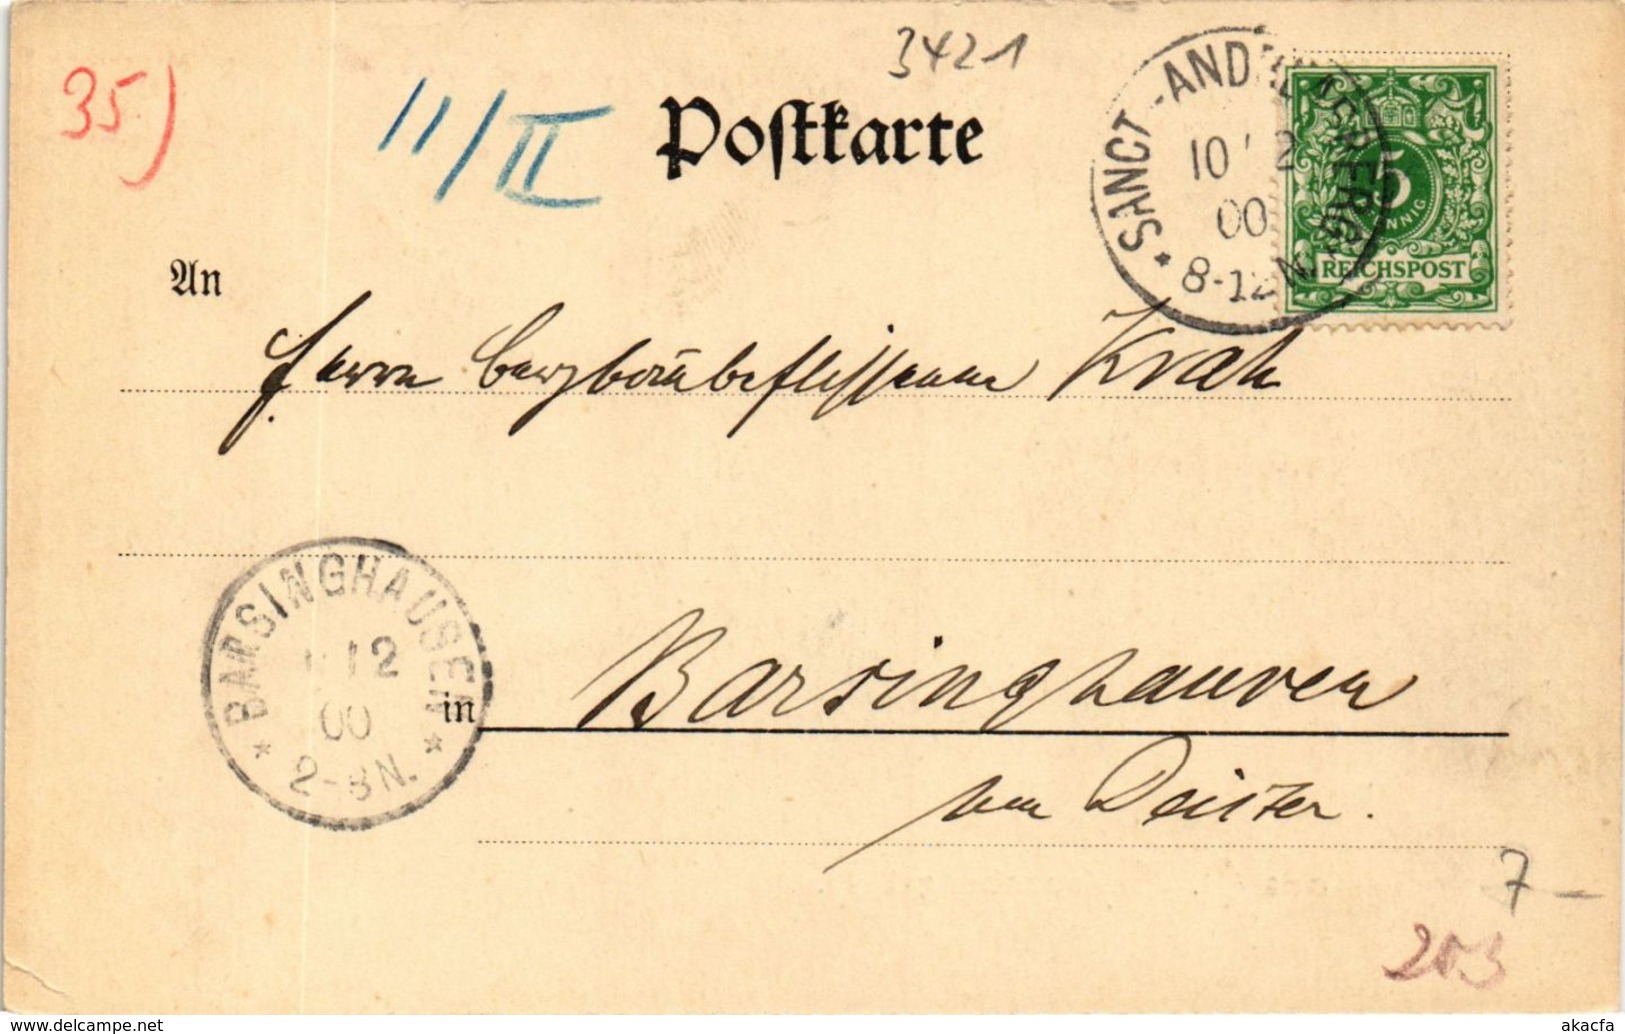 35)
11/II
3421
Postkarte
SANCT-ANDREASBERG
10 12
00
8-12 N.
5
PFENNIG
REICHSPOST
An
Herrn Bergbaubeflissenen Krah
BARSINGHAUSEN
12
00
2-3 N.
in
Barsinghausen
am Deister.
7-
203
www.delcampe.net
akacfa